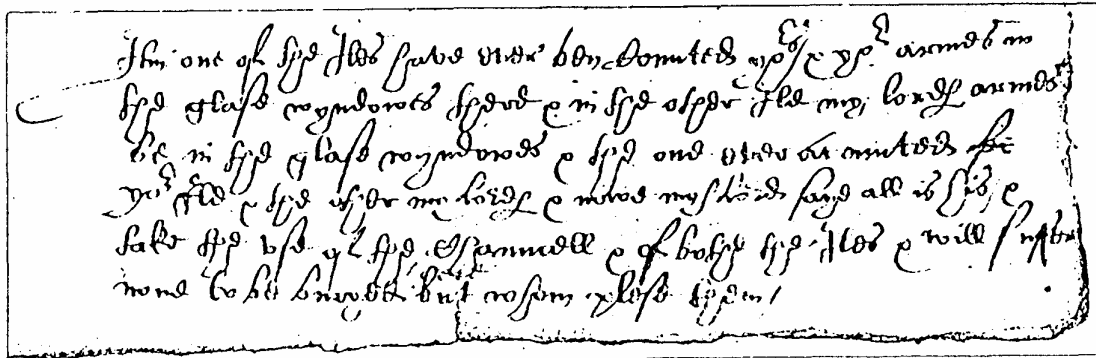 Itm one of the Iles have ever ben commted yors & yor armes in
the glase wyndowes there & in the other Ile my lordes armes
be in the glase wyndowes & the one ever accomted
yor Ile & the other my lordes & nowe my lord saye all is his &
take the use of the Channcell & of bothe the Iles & will suffer
none to be buryed but whom plese them /